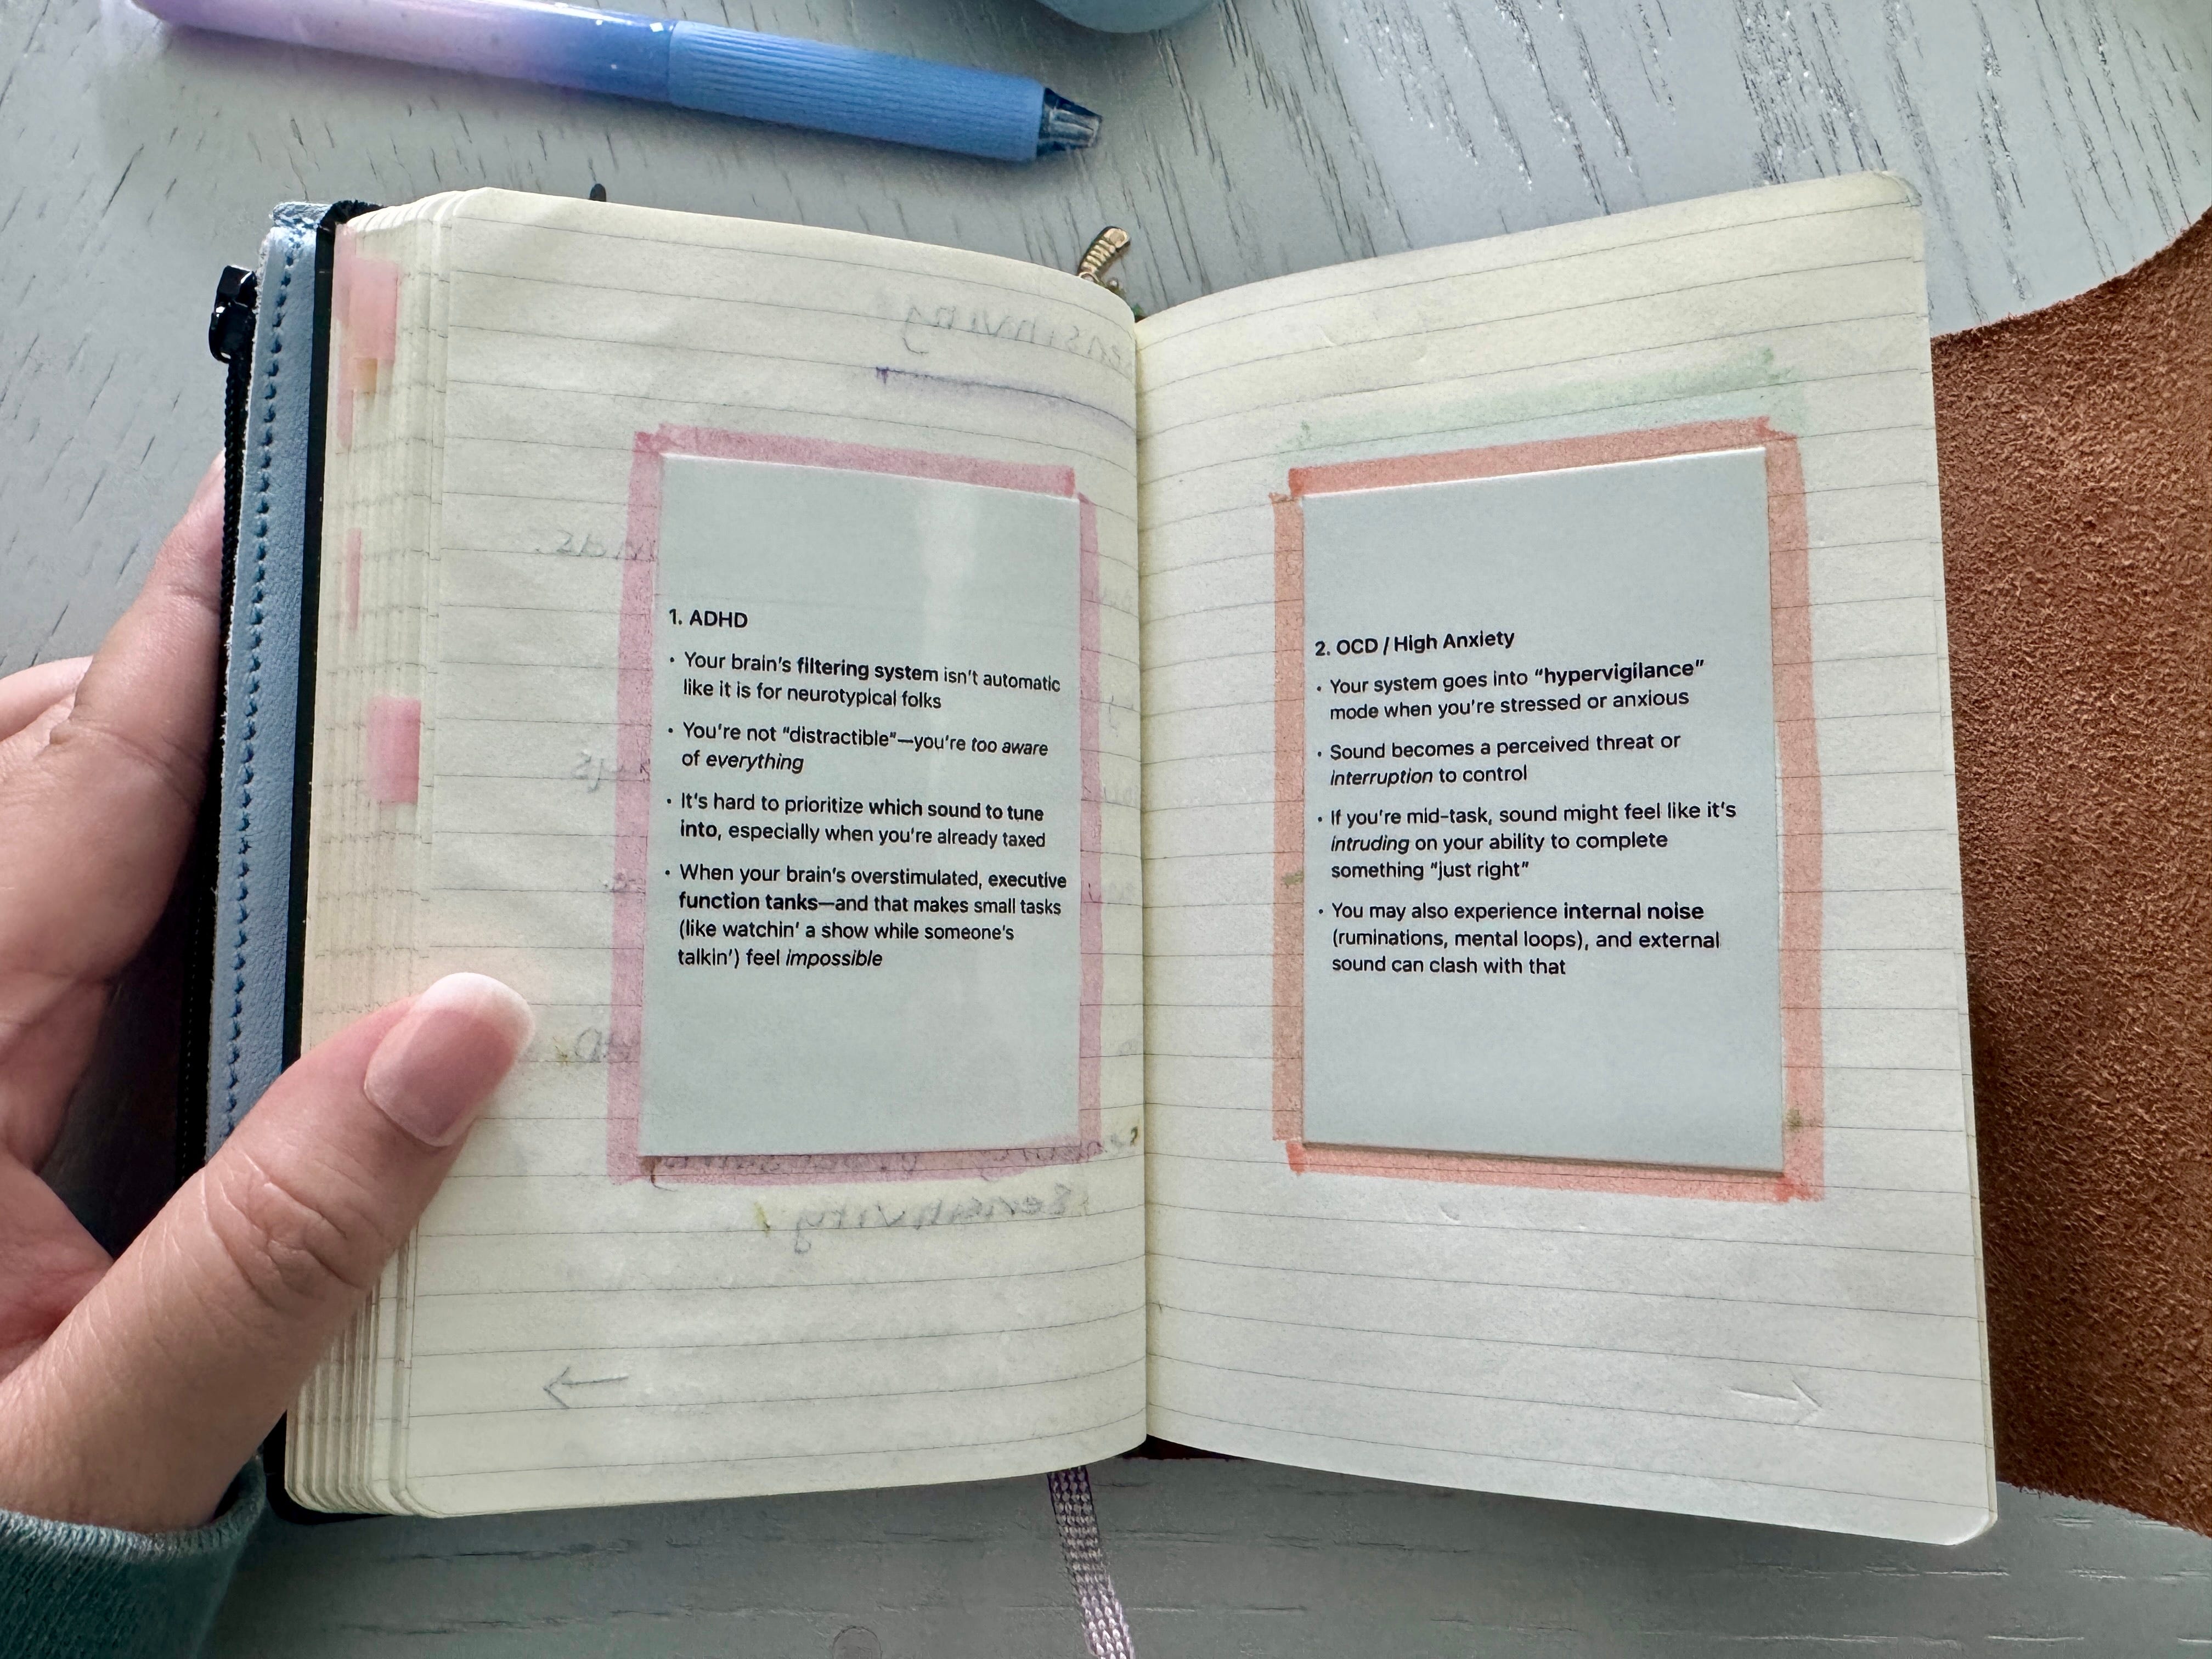 1. ADHD
• Your brain's filtering system isn't automatic
like it is for neurotypical folks
• You're not "distractible"—you're too aware
of everything
• It's hard to prioritize which sound to tune
into, especially when you're already taxed
• When your brain's overstimulated, executive
function tanks—and that makes small tasks
(like watchin' a show while someone's
talkin') feel impossible
2. OCD / High Anxiety
• Your system goes into "hypervigilance"
mode when you're stressed or anxious
• Sound becomes a perceived threat or
interruption to control
• If you're mid-task, sound might feel like it's
intruding on your ability to complete
something "just right"
• You may also experience internal noise
(ruminations, mental loops), and external
sound can clash with that